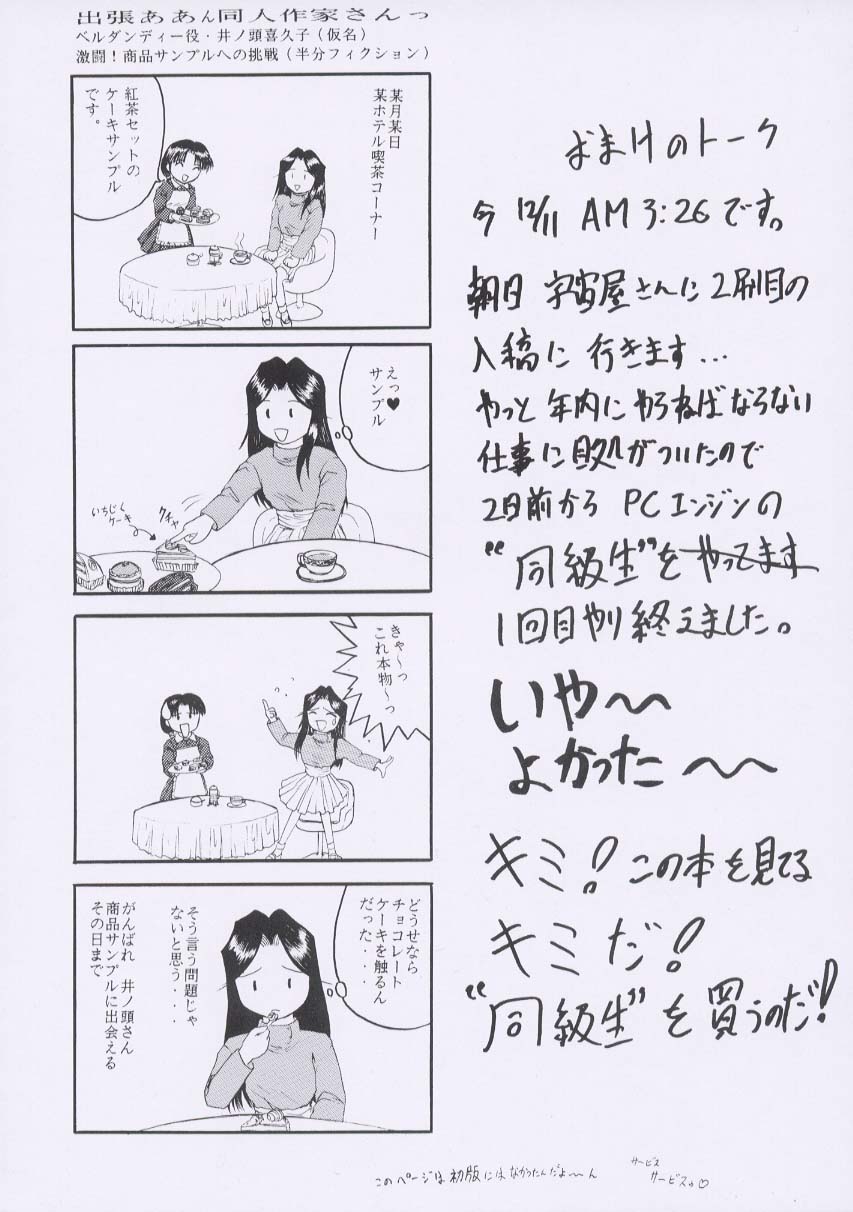 出張ああん同人作家さんっ
ベルダンディー役・井ノ頭喜久子(仮名)
激闘!商品サンプルへの挑戦(半分フィクション)
某月某日
某ホテル喫茶コーナー
紅茶セットの
ケーキサンプル
です。
えっ♥
サンプル
いちじく
ケーキ
クチャ
きゃ~っ
これ本物~っ
どうせなら
チョコレート
ケーキを触るん
だった・・
そう言う問題じゃ
ないと思う・・・
がんばれ 井ノ頭さん
商品サンプルに出会える
その日まで
おまけのトーク
今 12/11 AM 3:26です。
朝日 宇宙屋さんに2刷目の
入稿に 行きます...
やっと 年内に やらねばならない
仕事に目処がついたので
2日前から PCエンジンの
“同級生”をやってます
1回目やり終えました。
いや~~
よかった~~
キミ!この本を見てる
キミだ!
“同級生”を買うのだ!
このページは初版にはなかったんだよ~ん
サービス
サービスゥ♡